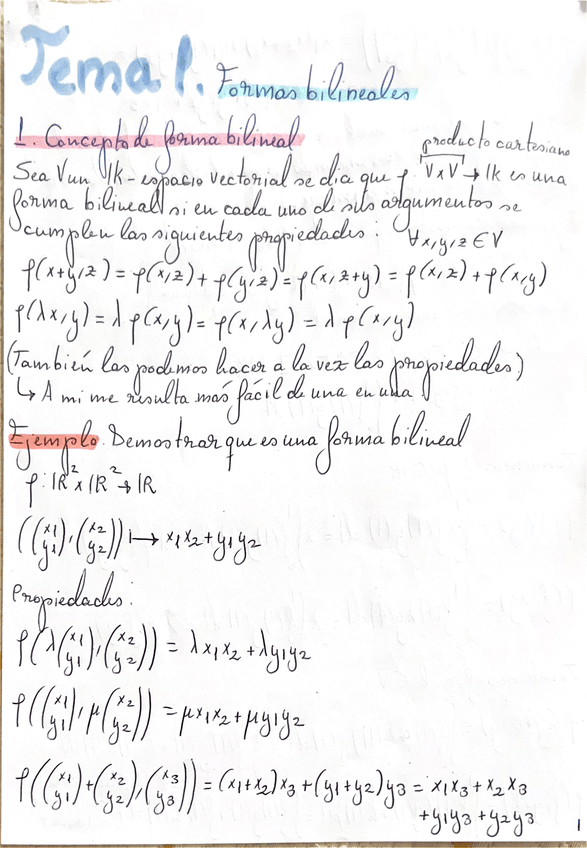 Tema 1. Formas bilineales
1. Concepto de forma bilineal
producto cartesiano
Sea V un lk-espacio vectorial se dia que f: V x V → lk es una
forma bilineal si en cada uno de sus argumentos se
cumplen las siguientes propiedades: ∀x,y,z ∈ V
f(x+y,z) = f(x,z) + f(y,z) = f(x,z+y) = f(x,z) + f(x,y)
f(λx,y) = λ f(x,y) = f(x,λy) = λ f(x,y)
(También las podemos hacer a la vez las propiedades)
↳ A mi me resulta más fácil de una en una
Ejemplo. Demostrar que es una forma bilineal
f: lR² x lR² → lR
((x1 y1), (x2 y2)) ↦ x1x2 + y1y2
Propiedades:
f(λ(x1 y1), (x2 y2)) = λx1x2 + λy1y2
f((x1 y1), μ(x2 y2)) = μx1x2 + μy1y2
f((x1 y1) + (x2 y2), (x3 y3)) = (x1+x2)x3 + (y1+y2)y3 = x1x3 + x2x3
+ y1y3 + y2y3
1